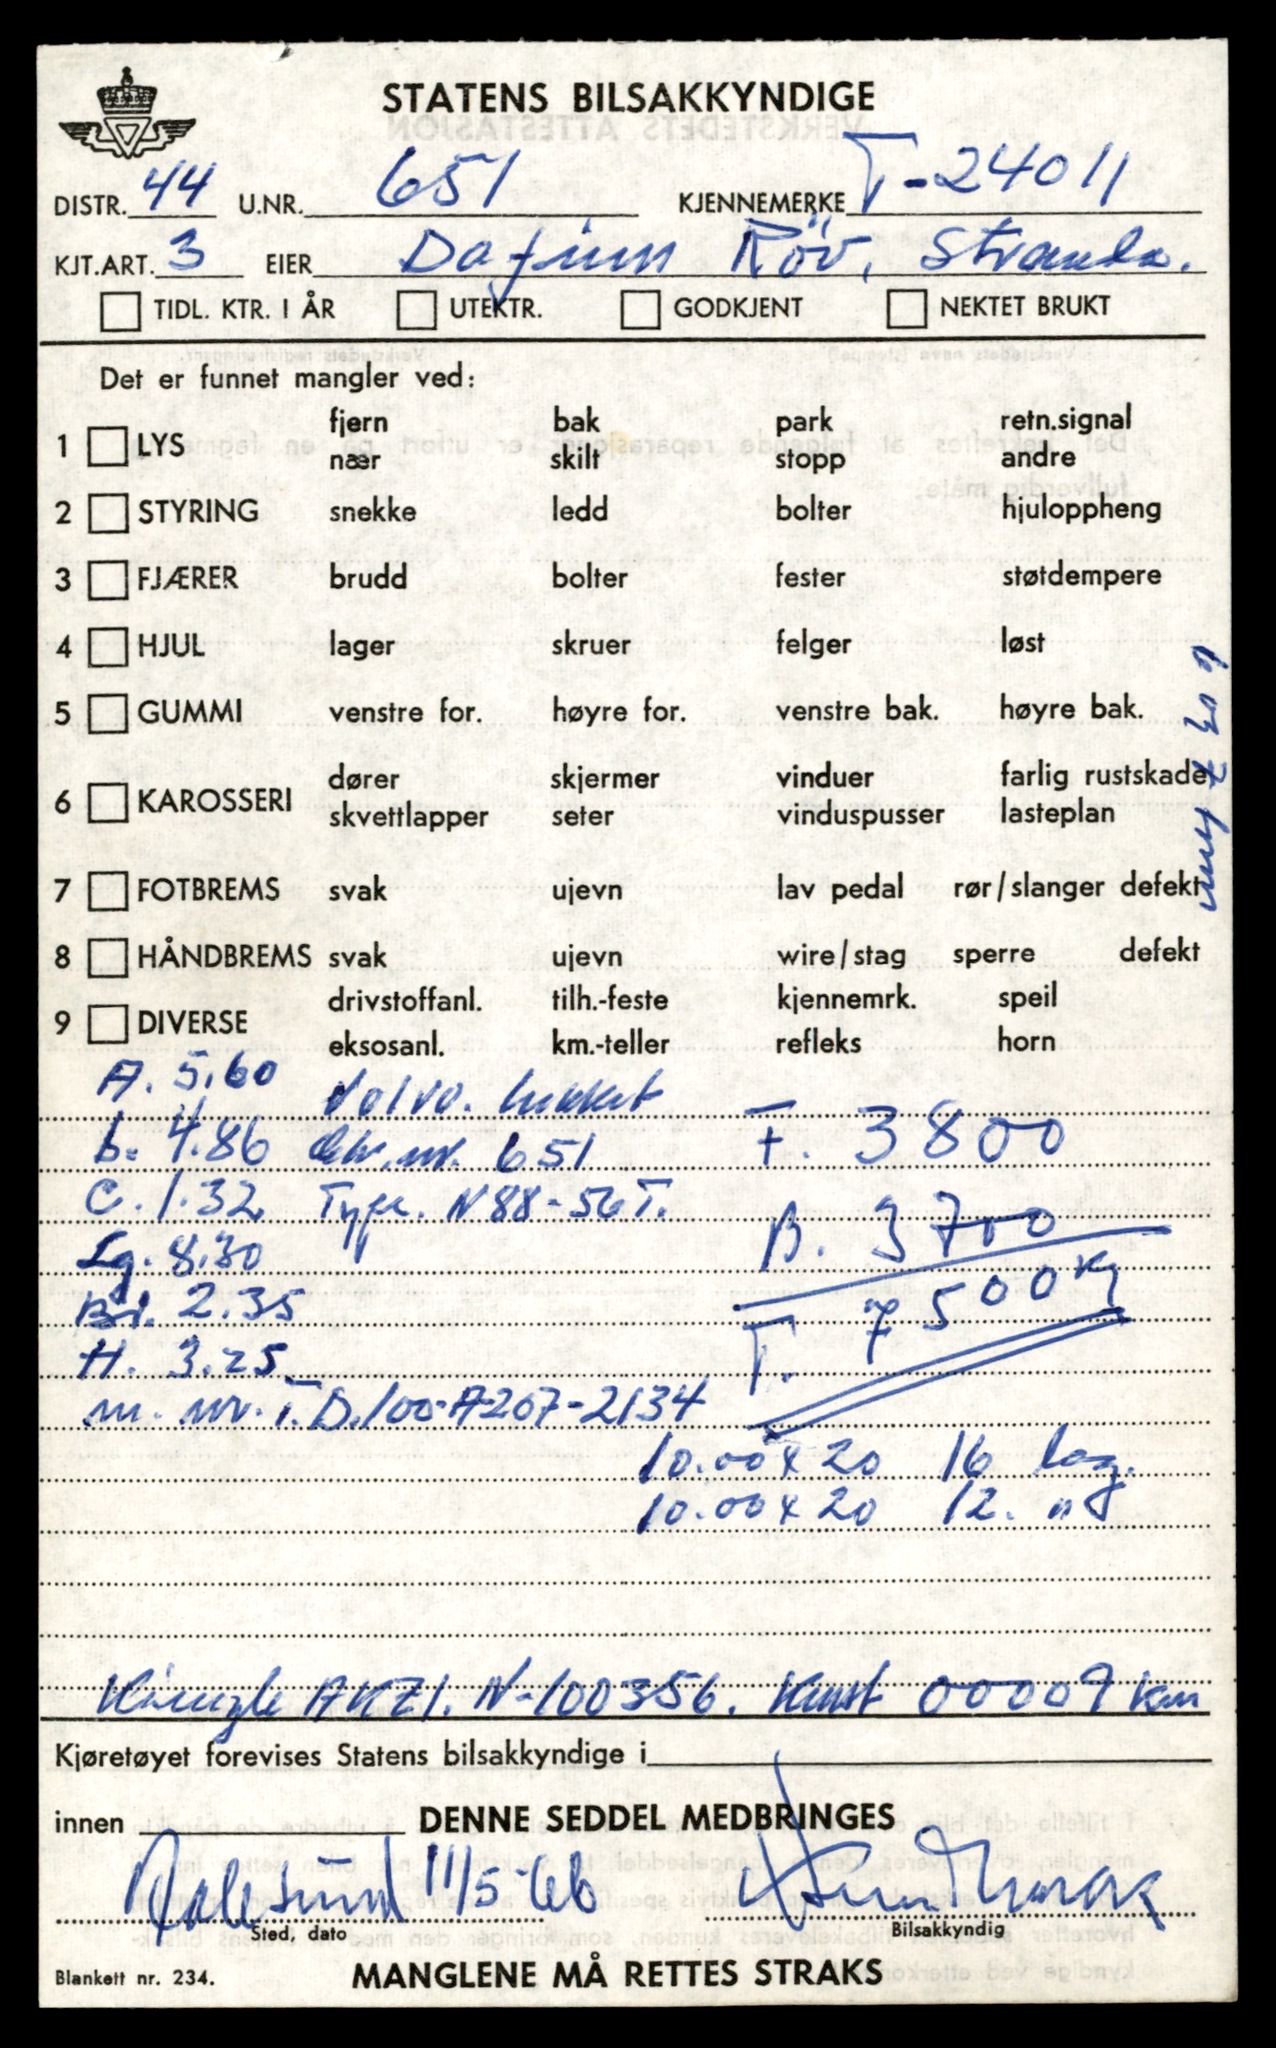 STATENS BILSAKKYNDIGE
DISTR. 44 U.NR. 651 KJENNEMERKE T-24011
KJT.ART. 3 EIER Dagfinn Röv, Stranda.
TIDL. KTR. I ÅR UTEKTR. GODKJENT NEKTET BRUKT
Det er funnet mangler ved:
1 LYS fjern bak park retn.signal
nær skilt stopp andre
2 STYRING snekke ledd bolter hjuloppheng
3 FJÆRER brudd bolter fester støtdempere
4 HJUL lager skruer felger løst
5 GUMMI venstre for. høyre for. venstre bak. høyre bak.
6 KAROSSERI dører skjermer vinduer farlig rustskade
skvettlapper seter vinduspusser lasteplan
7 FOTBREMS svak ujevn lav pedal rør/slanger defekt
8 HÅNDBREMS svak ujevn wire/stag sperre defekt
9 DIVERSE drivstoffanl. tilh.-feste kjennemrk. speil
eksosanl. km.-teller refleks horn
A. 5.60 Volvo. lukket
b. 4.86 Chr.nr. 651 F. 3800
C. 1.32 Type. N88-56 T.
B. 3700
Lg. 8.30
Br. 2.35 T. 7500 kg
H. 3.25
m. nr. T.D.100-A-207-2134
10.00 x 20 16 lag.
10.00 x 20 12. "
Kienzle AKZ1. N-100356. Kmst 00009 km
Kjøretøyet forevises Statens bilsakkyndige i
innen DENNE SEDDEL MEDBRINGES
Aalesund 11/5-66
Sted, dato Bilsakkyndig
Blankett nr. 234. MANGLENE MÅ RETTES STRAKS